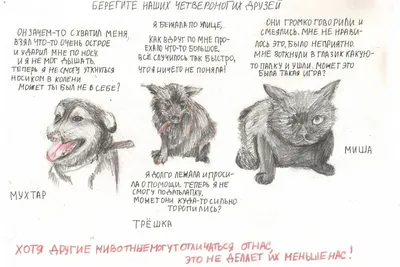 БЕРЕГИТЕ НАШИХ ЧЕТВЕРОНОГИХ ДРУЗЕЙ
ОН ЗАЧЕМ-ТО СХВАТИЛ МЕНЯ,
ВЗЯЛ ЧТО-ТО ОЧЕНЬ ОСТРОЕ
И УДАРИЛ МНЕ ПО НОСУ.
И Я НЕ МОГ ДЫШАТЬ.
ТЕПЕРЬ Я НЕ СМОГУ УТКНУТЬСЯ
НОСИКОМ В КОЛЕНИ
МОЖЕТ ТЫ БЫЛ НЕ В СЕБЕ?
МУХТАР
Я БЕЖАЛА ПО УЛИЦЕ,
КАК ВДРУГ ПО МНЕ ПРО-
ЕХАЛО ЧТО-ТО БОЛЬШОЕ,
ВСЁ СЛУЧИЛОСЬ ТАК БЫСТРО,
ЧТО Я НИЧЕГО НЕ ПОНЯЛА!
Я ДОЛГО ЛЕЖАЛА И ПРОСИ-
ЛА О ПОМОЩИ. ТЕПЕРЬ Я НЕ
СМОГУ ПОДАТЬ ЛАПКУ.
МОЖЕТ ОНИ КУДА-ТО СИЛЬНО
ТОРОПИЛИСЬ?
ТРЁШКА
ОНИ ГРОМКО ГОВОРИЛИ И
СМЕЯЛИСЬ. МНЕ НЕ НРАВИ-
ЛОСЬ ЭТО, БЫЛО НЕПРИЯТНО.
МНЕ ВОТКНУЛИ В ГЛАЗИК КАКУЮ-
ТО ПАЛКУ И УШЛИ. МОЖЕТ ЭТО
БЫЛА ТАКАЯ ИГРА?
МИША
ХОТЯ ДРУГИЕ ЖИВОТНЫЕ МОГУТ ОТЛИЧАТЬСЯ ОТ НАС,
ЭТО НЕ ДЕЛАЕТ ИХ МЕНЬШЕ НАС!